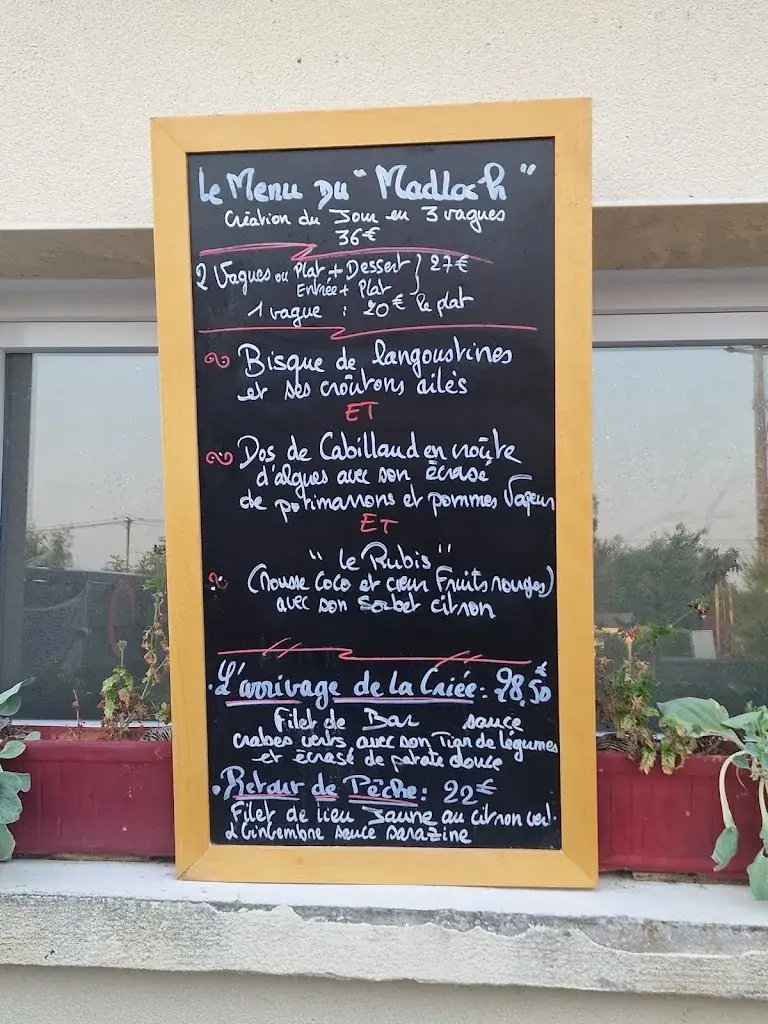 Le Menu du "Madloc'h"
Création du Jour en 3 vagues
36€
2 Vagues ou Plat + Dessert } 27€
Entrée + Plat
1 vague : 20€ le plat
Bisque de langoustines
et ses croûtons ailés
ET
Dos de Cabillaud en croûte
d'algues avec son écrasé
de potimarrons et pommes Vapeur
ET
"Le Rubis"
(Mousse Coco et cœur Fruits rouges)
avec son Sorbet citron
L'arrivage de la Criée : 28,50€
Filet de Bar sauce
crabes verts avec son Tian de légumes
et écrasé de patate douce
Retour de Pêche : 22€
Filet de lieu Jaune au citron vert
& Gingembre sauce sarazine